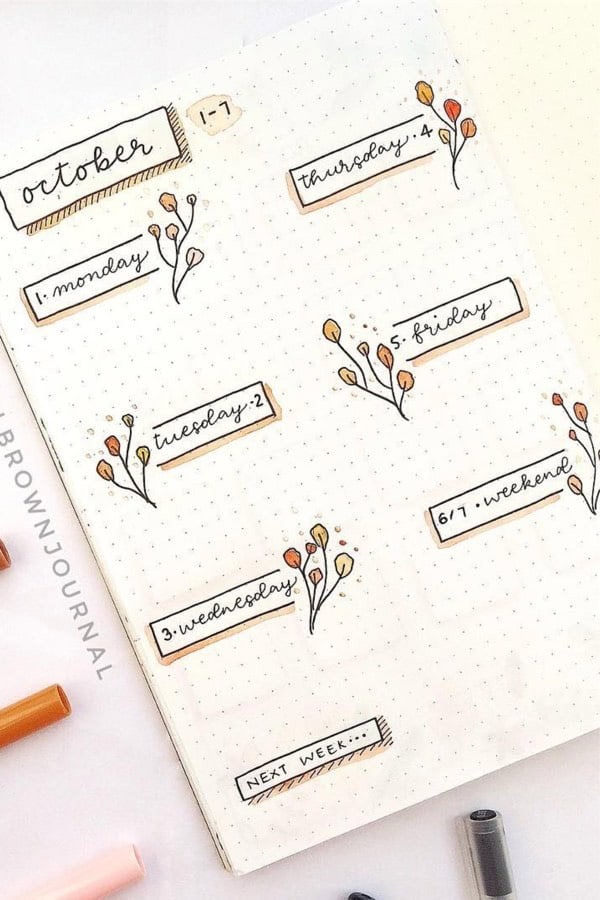 october
1-7
1. monday
tuesday.2
3.wednesday
thursday.4
5. friday
6/7.weekend
NEXT WEEK...
BROWNJOURNAL